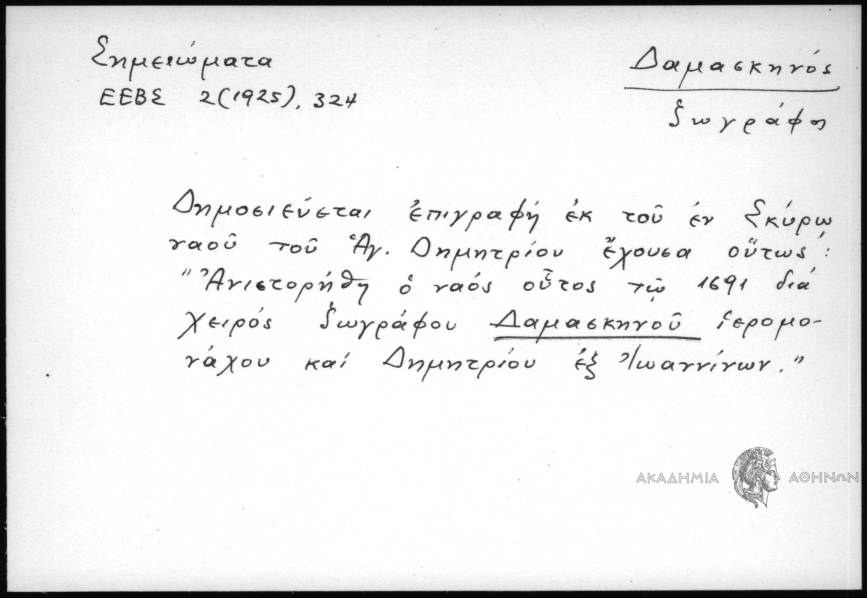 Σημειώματα
ΕΕΒΣ 2(1925), 324
Δαμασκηνός
ζωγράφος
Δημοσιεύεται ἐπιγραφή ἐκ τοῦ ἐν Σκύρῳ
ναοῦ τοῦ Ἁγ. Δημητρίου ἔχουσα οὕτως:
"Ἀνιστορήθη ὁ ναός οὗτος τῷ 1691 διά
χειρός ζωγράφου Δαμασκηνοῦ ἱερομο-
νάχου καί Δημητρίου ἐξ Ἰωαννίνων."
ΑΚΑΔΗΜΙΑ ΑΘΗΝΩΝ